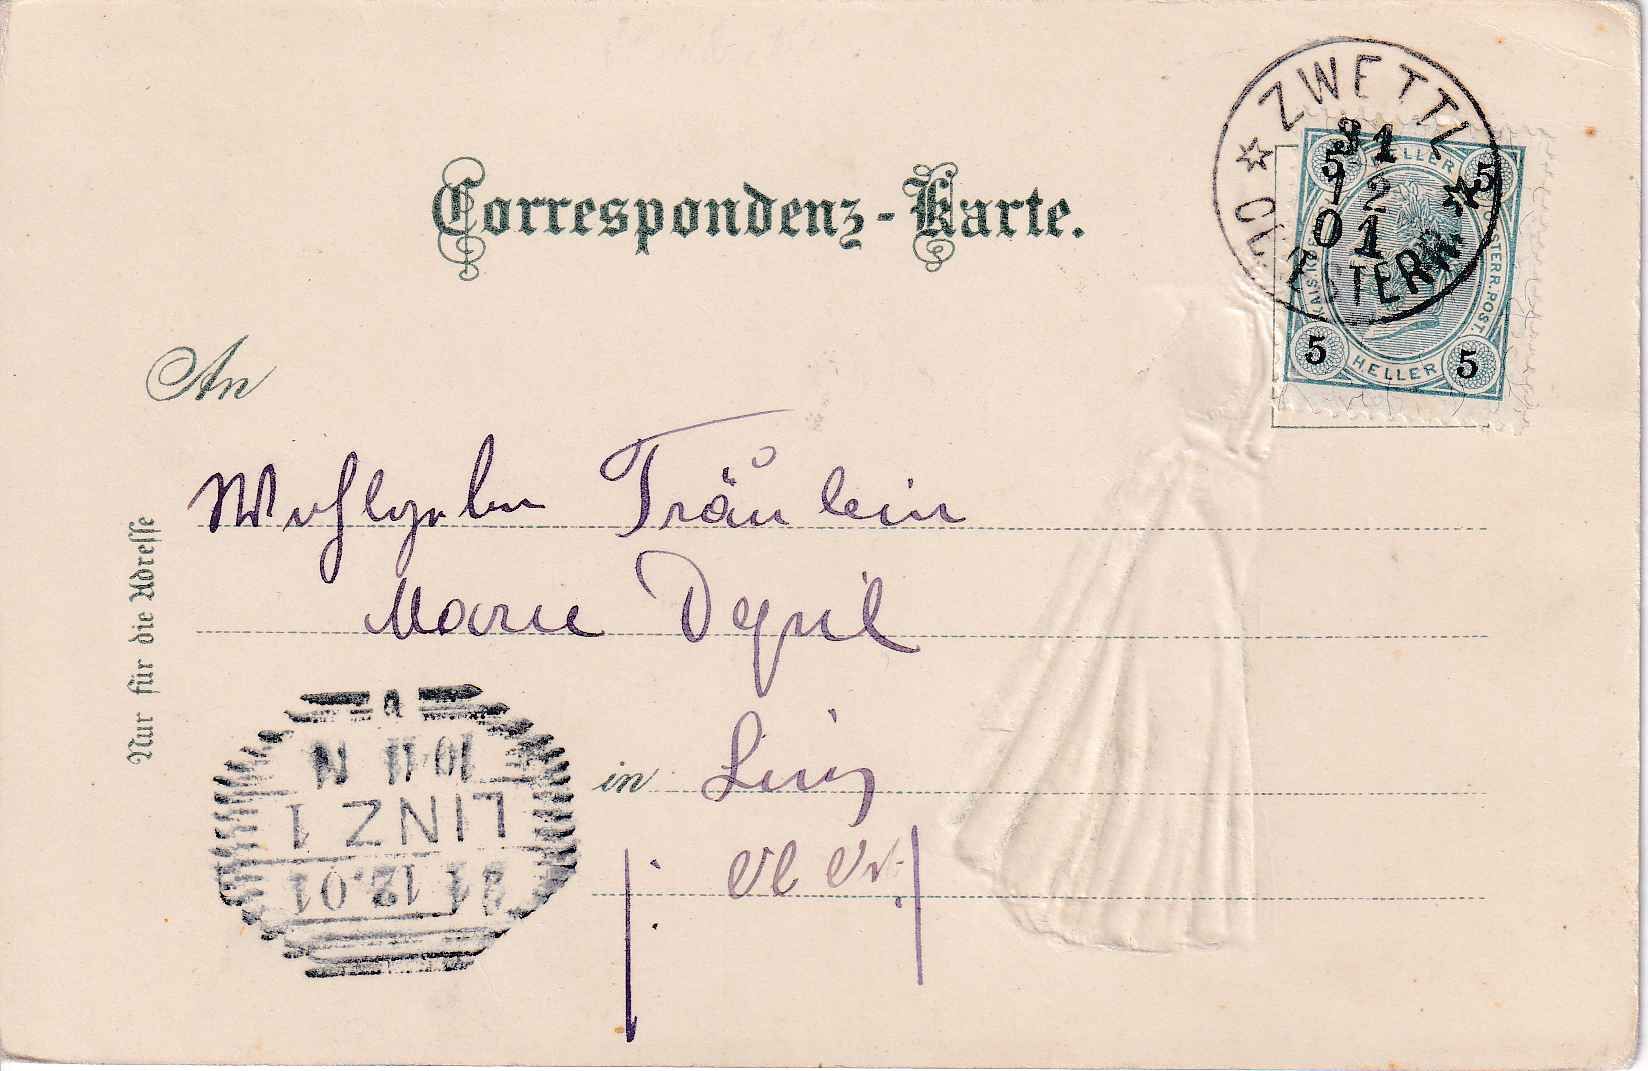 Correspondenz-Karte.
ZWETTL
31
12
01
N. ÖSTERR.
5 HELLER 5
KAIS. KÖN. ÖSTERR. POST.
5 HELLER 5
An
Wohlgeborn Fräulein
Marie
in Linz
Nur für die Adresse
10-11 N
LINZ 1
12.01